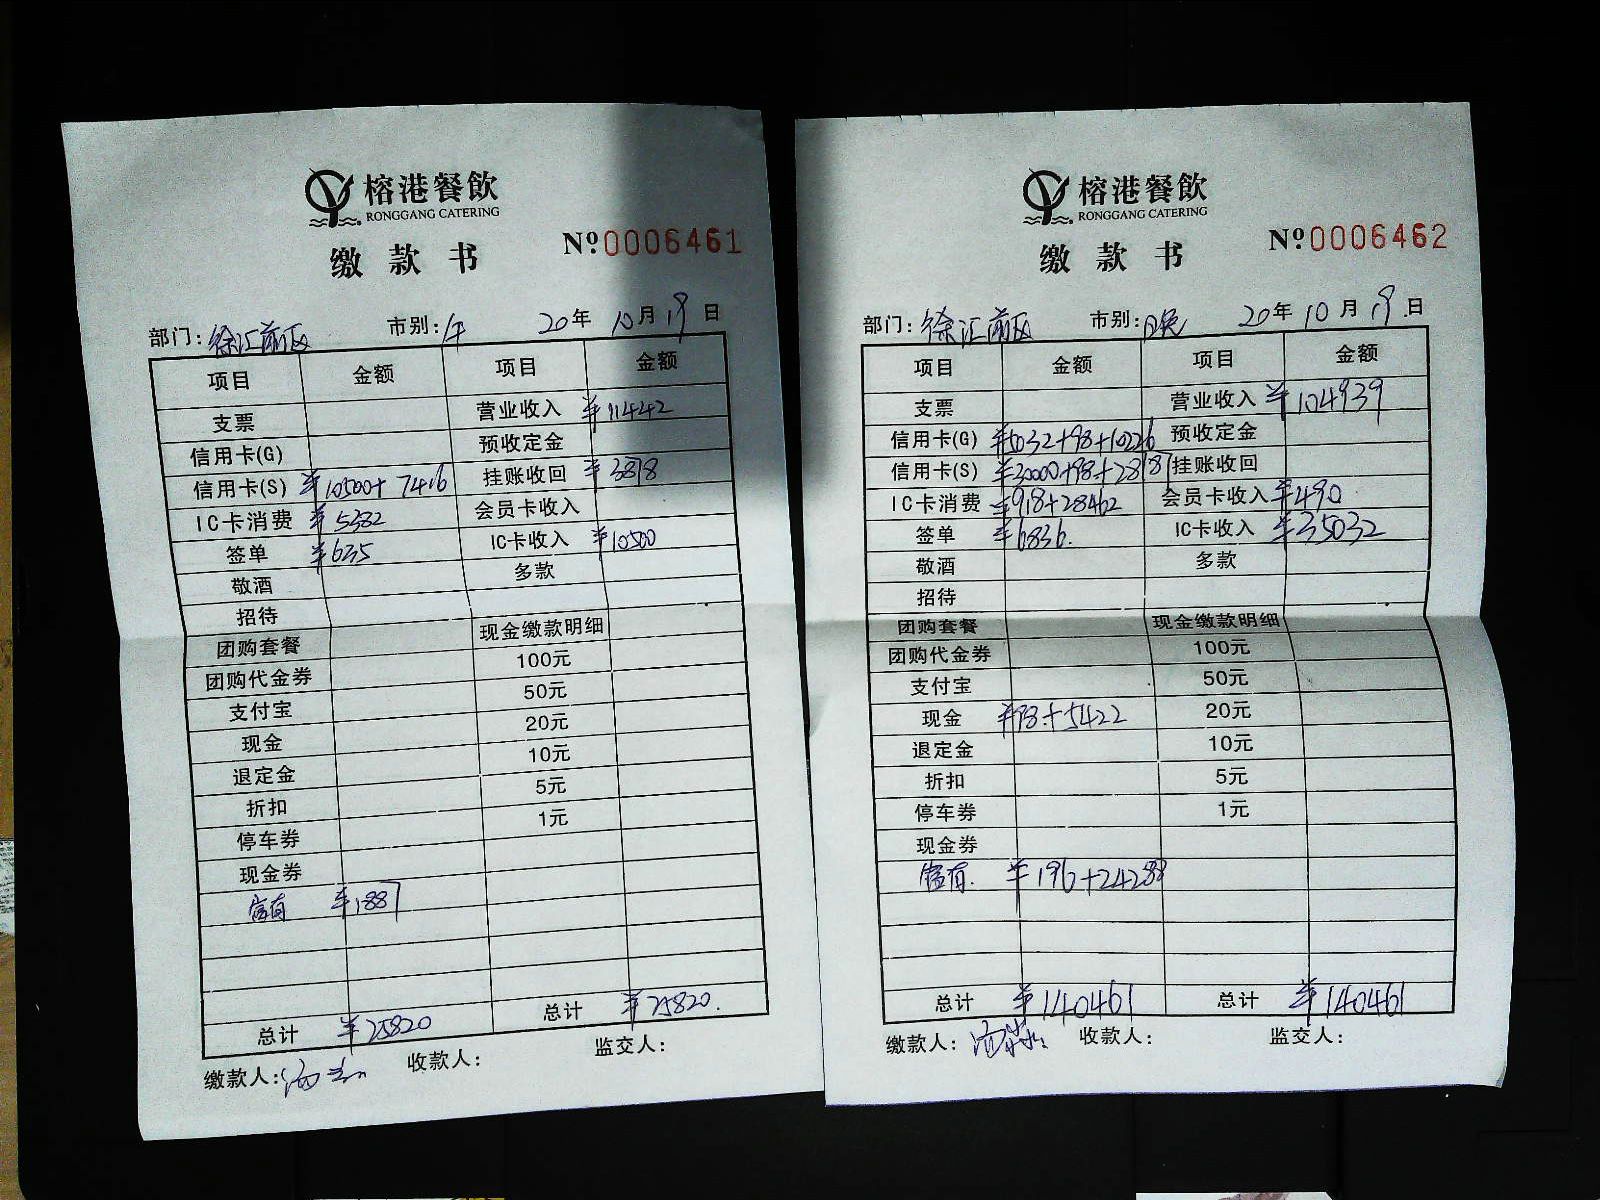 榕港餐飲
RONGGANG CATERING
缴款书 Nº0006461
部门:徐汇前区 市别:午 20年10月19日
项目 金额 项目 金额
支票 营业收入 ¥11442
信用卡(G) 预收定金
信用卡(S) ¥10500+7416 挂账收回 ¥3878
IC卡消费 ¥5382 会员卡收入
签单 ¥635 IC卡收入 ¥10500
敬酒 多款
招待
团购套餐 现金缴款明细
团购代金券 100元
支付宝 50元
现金 20元
退定金 10元
折扣 5元
停车券 1元
现金券
¥1887
总计 ¥25820 总计 ¥25820.
缴款人: 收款人: 监交人:
榕港餐飲
RONGGANG CATERING
缴款书 Nº0006462
部门:徐汇前区 市别:晚 20年10月19日
项目 金额 项目 金额
支票 营业收入 ¥104939
信用卡(G) ¥5032+98+10226 预收定金
信用卡(S) ¥30000+98+28787 挂账收回
IC卡消费 ¥918+28462 会员卡收入 ¥490
签单 ¥6836. IC卡收入 ¥35032
敬酒 多款
招待
团购套餐 现金缴款明细
团购代金券 100元
支付宝 50元
现金 ¥98+5422 20元
退定金 10元
折扣 5元
停车券 1元
现金券
¥196+24288
总计 ¥140461 总计 ¥140461
缴款人: 收款人: 监交人: